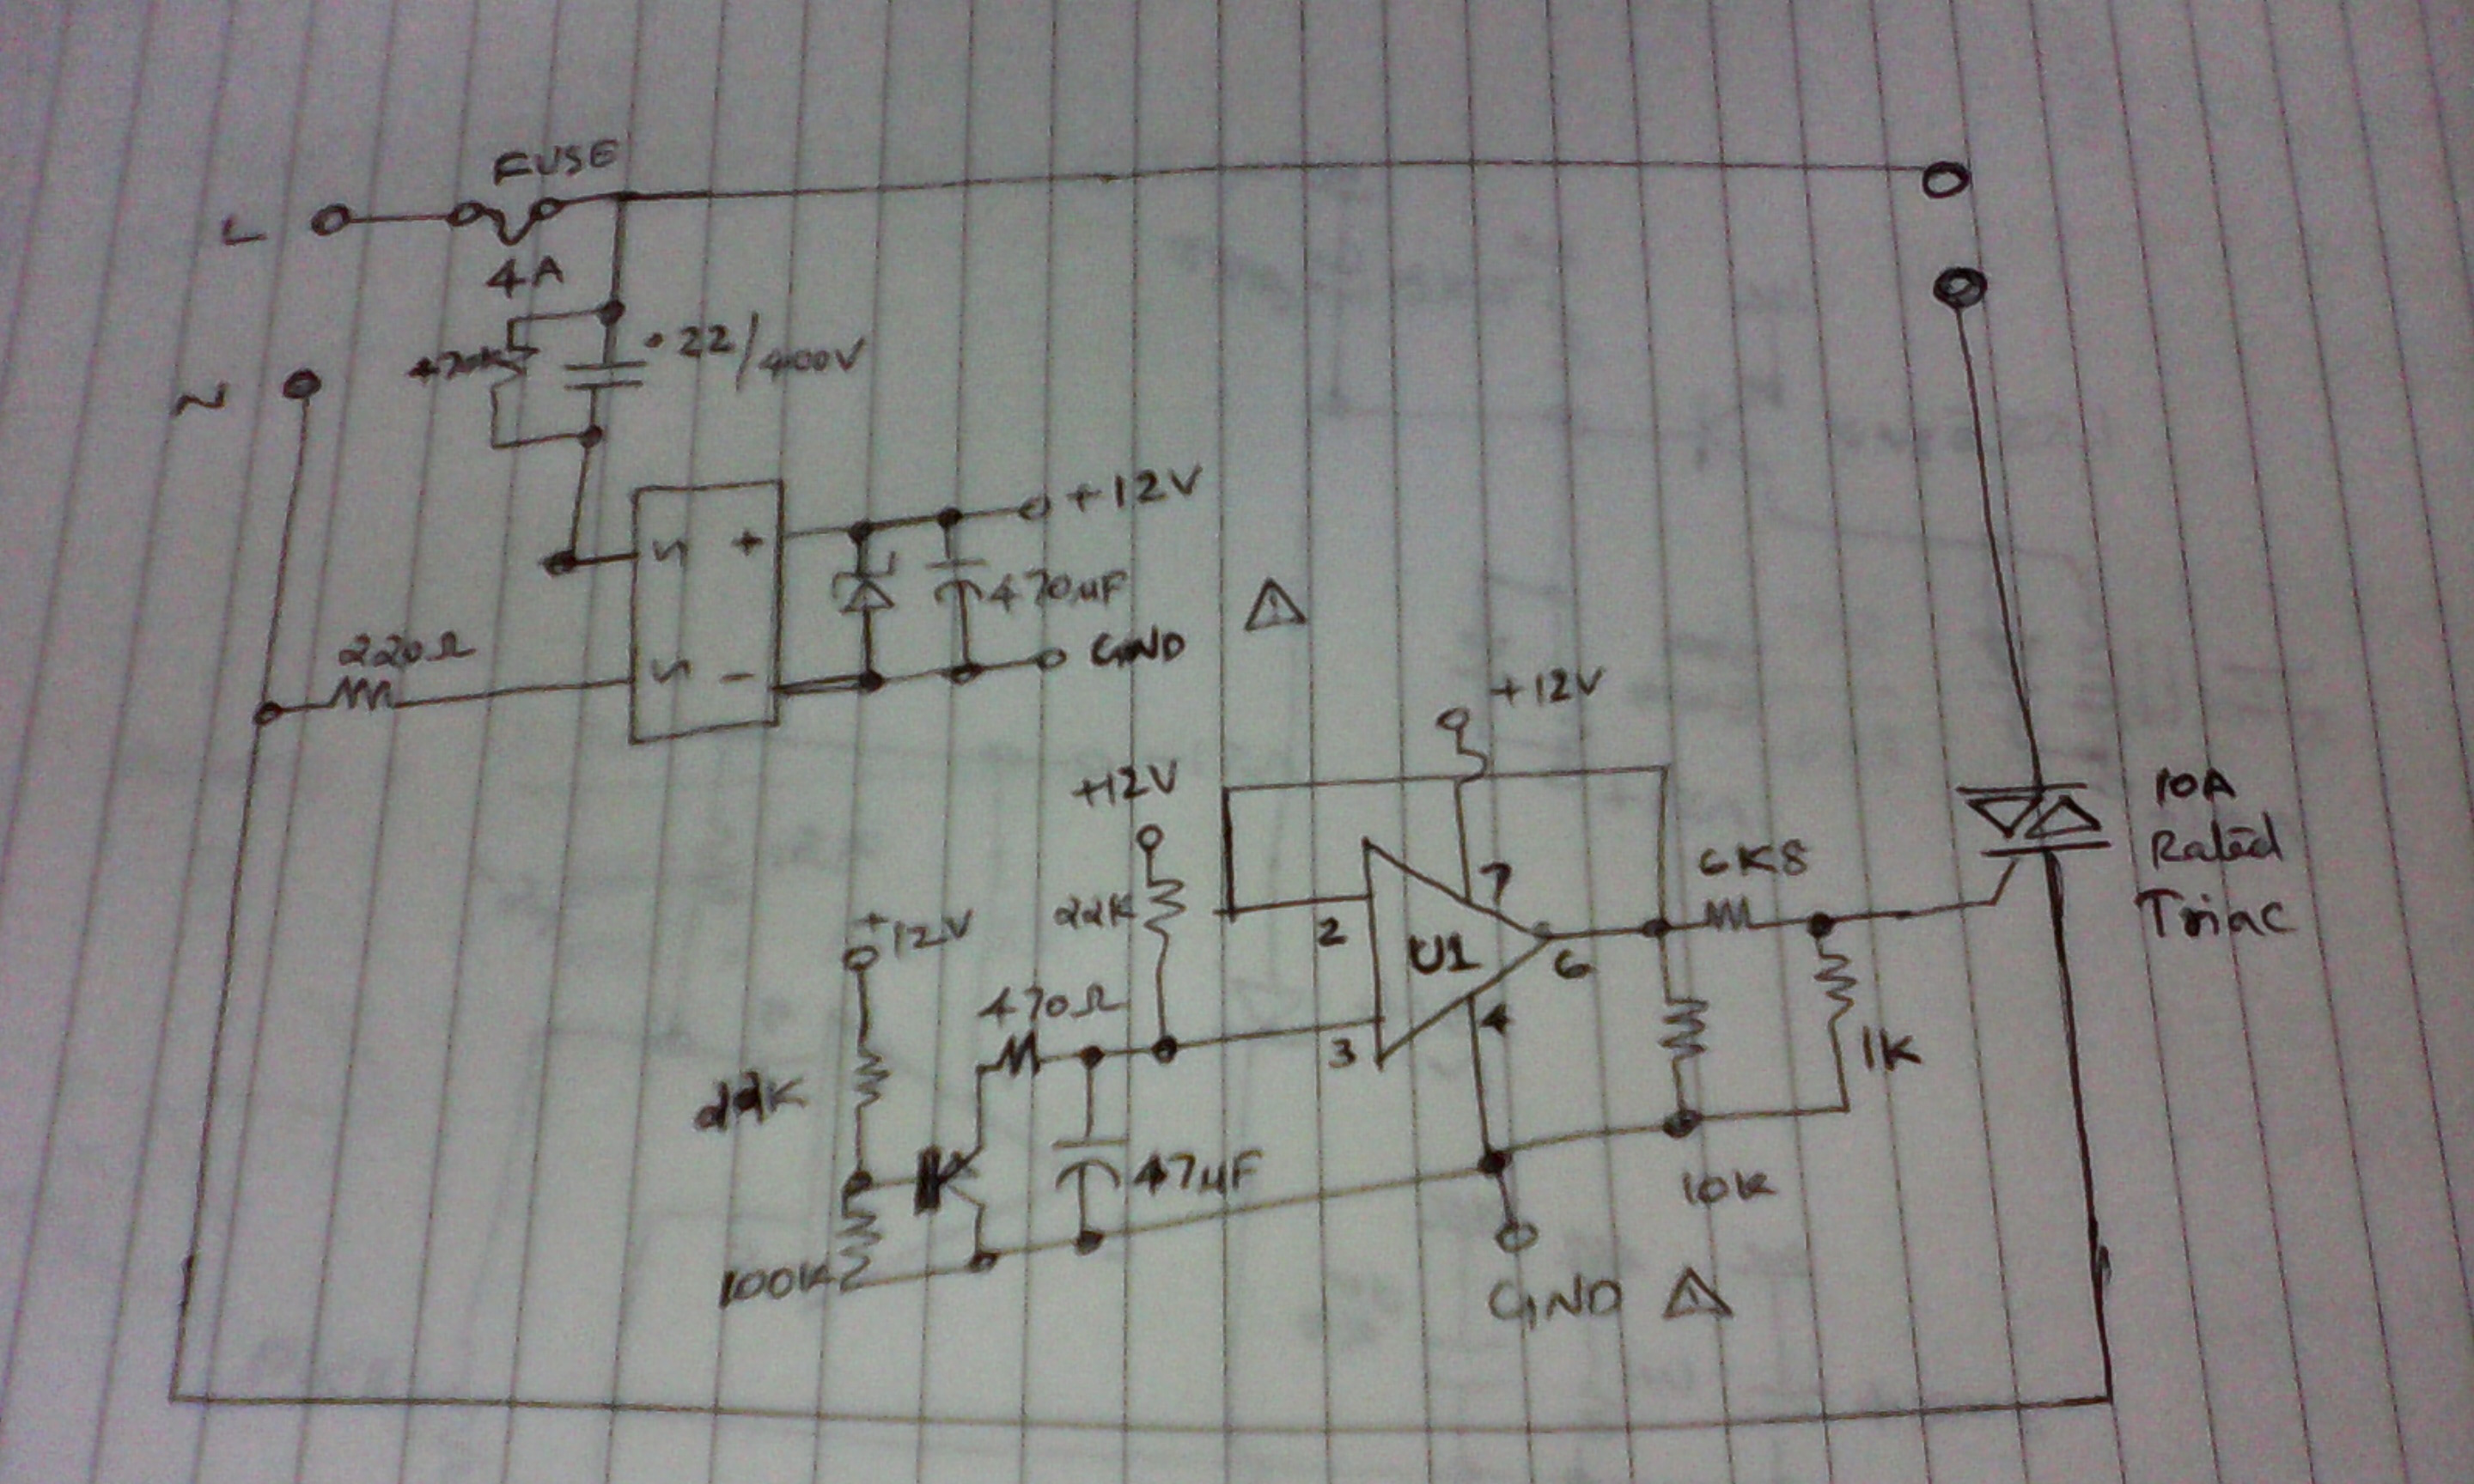 FUSE
L
4A
.22/400V
470K
N
+12V
+
470µF
220Ω
-
GND
+12V
+12V
10A
Rated
Triac
6K8
7
22K
+12V
2
U1
6
470Ω
4
3
1K
22K
47µF
10K
100K
GND